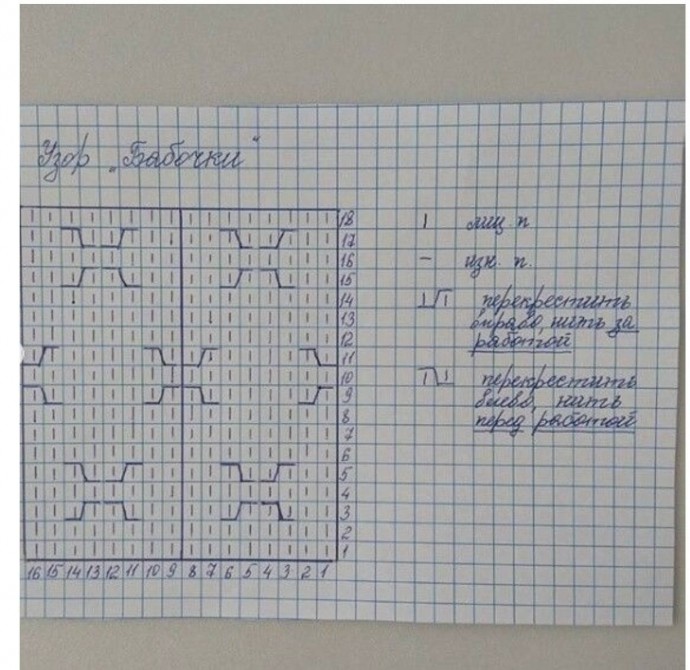 Узор „Бабочки"
18
17
16
15
14
13
12
11
10
9
8
7
6
5
4
3
2
1
16 15 14 13 12 11 10 9 8 7 6 5 4 3 2 1
лиц. п
изн. п.
перекрестить
вправо, нить за
работой
перекрестить
влево, нить
перед работой